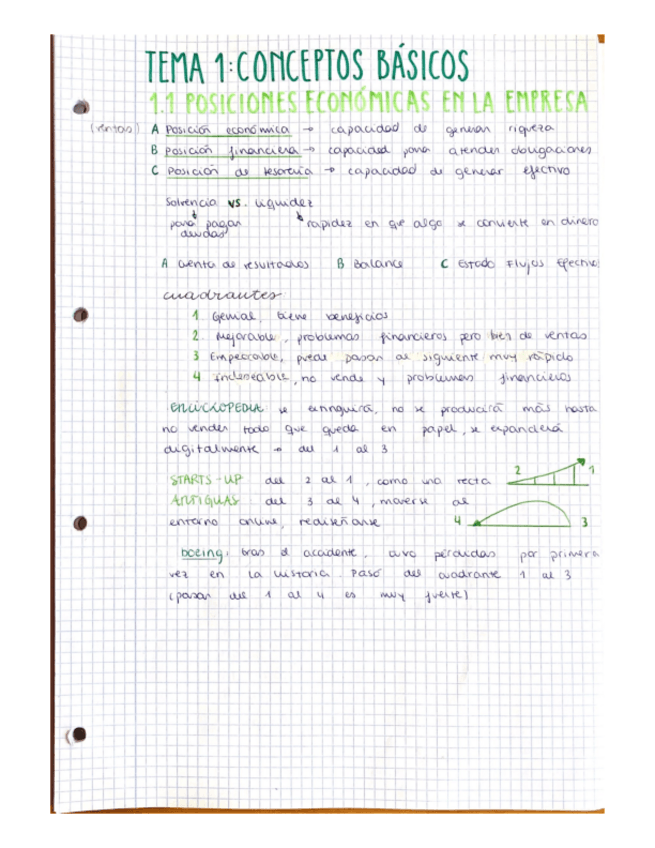 TEMA 1: CONCEPTOS BÁSICOS
1.1 POSICIONES ECONÓMICAS EN LA EMPRESA
(ventas) A Posición económica → capacidad de generar riqueza
B Posición financiera → capacidad para atender obligaciones
C Posición de tesorería → capacidad de generar efectivo
Solvencia vs. Liquidez
para pagar deudas
rapidez en que algo se convierte en dinero
A Cuenta de resultados B Balance C Estado Flujos Efectivo
cuadrantes
1. Genial, tiene beneficios
2. Mejorable, problemas financieros pero bien de ventas
3 Empeorable, puede pasar al siguiente muy rápido
4 Indeseable, no vende y problemas financieros
ENCICLOPEDIA se extinguirá, no se producirá más hasta
no vender todo que queda en papel, se expanderá
digitalmente → del 1 al 3
STARTS-UP del 2 al 1, como una recta
2 1
ANTIGUAS del 3 al 4, moverse al
entorno online, rediseñarse
4 3
boeing: tras el accidente, tuvo pérdidas por primera
vez en la historia. Pasó del cuadrante 1 al 3
(pasar del 1 al 4 es muy fuerte)